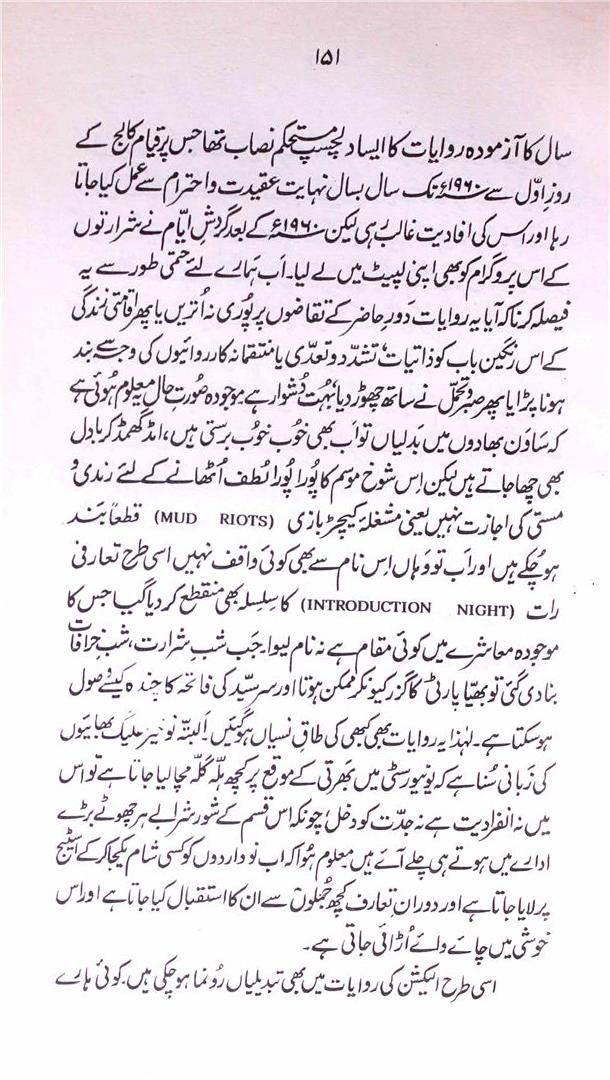 ۱۵۱
سال کا آزمودہ روایات کا ایسا دلچسپ مستحکم نصاب تھا جس پر قیام کالج کے
روزِ اوّل سے ۱۹۶۰ء تک سال بسال نہایت عقیدت و احترام سے عمل کیا جاتا
رہا اور اس کی افادیت غالب رہی لیکن ۱۹۶۰ء کے بعد گردشِ ایّام نے شرارتوں
کے اس پروگرام کو بھی اپنی لپیٹ میں لے لیا۔ اَب ہمارے لئے حتمی طور سے یہ
فیصلہ کرنا کہ آیا یہ روایات دَورِ حاضر کے تقاضوں پر پُوری نہ اُتریں یا پھر اقامتی زندگی
کے اس رنگین باب کو ذاتیات، تشدّد و تعدّی یا منتقمانہ کارروائیوں کی وجہ سے بند
ہونا پڑا یا پھر صبر و تحمّل نے ساتھ چھوڑ دیا بہُت دُشوار ہے موجودہ صُورتِ حال یہ معلوم ہُوئی ہے
کہ سَاوَن بھادوں میں بدلیاں تو اَب بھی خُوب خُوب برستی ہیں، امڈ گھمڈ کر بادل
بھی چھا جاتے ہیں لیکن اِس شوخ موسم کا پُورا پُورا لُطف اُٹھانے کے لئے رندی و
مستی کی اجازت نہیں یعنی مشغلۂ کیچڑ بازی (MUD RIOTS) قطعاً بَند
ہو چُکے ہیں اور اَب تو وَہاں اِس نام سے بھی کوئی واقف نہیں اسی طرح تعارفی
رات (INTRODUCTION NIGHT) کا سِلسِلہ بھی منقطع کر دیا گیا جس کا
موجودہ معاشرے میں کوئی مقام ہے نہ نام لیوا۔ جب شبِ شرارت، شبِ خرافات
بنا دی گئی تو بھیّا پارٹی کا گزر کیونکر ممکن ہوتا اور سرسیّد کی فاتحہ کا چندہ کیسے وصول
ہو سکتا ہے۔ لہٰذا یہ روایات بھی کبھی کی طاقِ نسیاں ہو گئیں اَلبتّہ نو خیز علیگ بھائیوں
کی زَبانی سُنا ہے کہ یونیورسٹی میں بھرتی کے موقع پر کچھ ہلّہ گلّہ مچا لیا جاتا ہے تو اس
میں نہ انفرادیت ہے نہ جدّت کو دخل؛ چونکہ اس قسم کے شور شرابے ہر چھوٹے بڑے
ادارے میں ہوتے ہی چلے آئے ہیں معلوم ہُوا کہ اب نو واردوں کو کسی شام یکجا کر کے اسٹیج
پر لایا جاتا ہے اور دورانِ تعارف کچھ جُملوں سے ان کا استقبال کیا جاتا ہے اور اس
خوشی میں چائے وائے اُڑائی جاتی ہے۔
اسی طرح الیکشن کی روایات میں بھی تبدیلیاں رُونما ہو چکی ہیں۔ کوئی ہارے